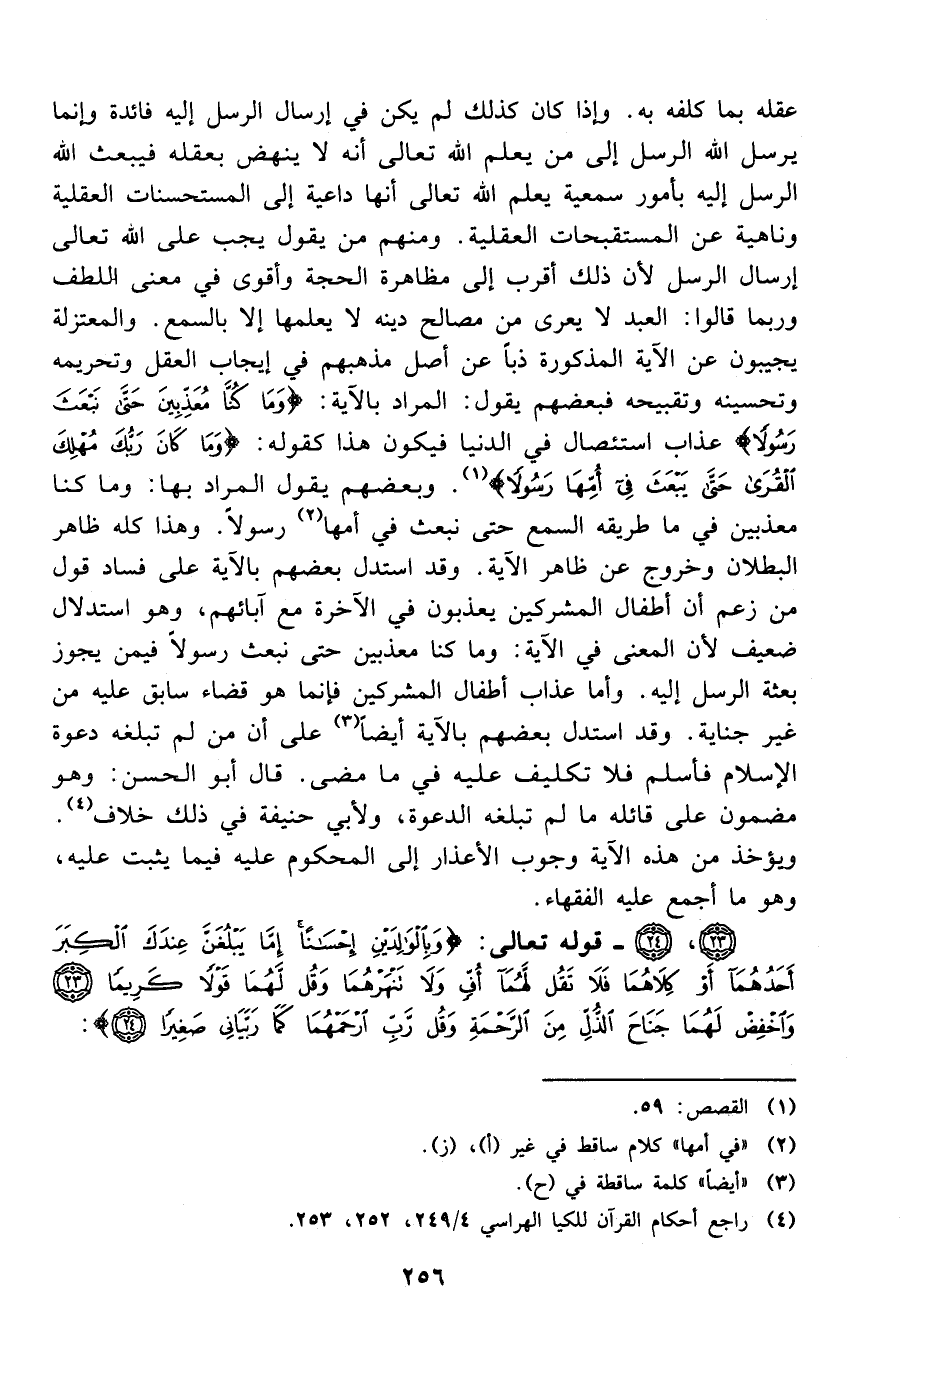 عقله بما كلفه به. وإذا كان كذلك لم يكن في إرسال الرسل إليه فائدة وإنما
يرسل الله الرسل إلى من يعلم الله تعالى أنه لا ينهض بعقله فيبعث الله
الرسل إليه بأمور سمعية يعلم الله تعالى أنها داعية إلى المستحسنات العقلية
وناهية عن المستقبحات العقلية. ومنهم من يقول يجب على الله تعالى
إرسال الرسل لأن ذلك أقرب إلى مظاهرة الحجة وأقوى في معنى اللطف
وربما قالوا: العبد لا يعرى من مصالح دينه لا يعلمها إلا بالسمع. والمعتزلة
يجيبون عن الآية المذكورة ذباً عن أصل مذهبهم في إيجاب العقل وتحريمه
وتحسينه وتقبيحه فبعضهم يقول: المراد بالآية: ﴿وَمَا كُنَّا مُعَذِّبِينَ حَتَّى نَبْعَثَ
رَسُولًا﴾ عذاب استئصال في الدنيا فيكون هذا كقوله: ﴿وَمَا كَانَ رَبُّكَ مُهْلِكَ
ٱلْقُرَىٰ حَتَّىٰ يَبْعَثَ فِىٓ أُمِّهَا رَسُولًا﴾(١). وبعضهم يقول المراد بها: وما كنا
معذبين في ما طريقه السمع حتى نبعث في أمها(٢) رسولاً. وهذا كله ظاهر
البطلان وخروج عن ظاهر الآية. وقد استدل بعضهم بالآية على فساد قول
من زعم أن أطفال المشركين يعذبون في الآخرة مع آبائهم، وهو استدلال
ضعيف لأن المعنى في الآية: وما كنا معذبين حتى نبعث رسولاً فيمن يجوز
بعثة الرسل إليه. وأما عذاب أطفال المشركين فإنما هو قضاء سابق عليه من
غير جناية. وقد استدل بعضهم بالآية أيضاً(٣) على أن من لم تبلغه دعوة
الإسلام فأسلم فلا تكليف عليه في ما مضى. قال أبو الحسن: وهو
مضمون على قائله ما لم تبلغه الدعوة، ولأبي حنيفة في ذلك خلاف(٤).
ويؤخذ من هذه الآية وجوب الأعذار إلى المحكوم عليه فيما يثبت عليه،
وهو ما أجمع عليه الفقهاء.
(٢٣)، (٢٤) ـ قوله تعالى: ﴿وَبِٱلْوَٰلِدَيْنِ إِحْسَـٰنًا ۚ إِمَّا يَبْلُغَنَّ عِندَكَ ٱلْكِبَرَ
أَحَدُهُمَآ أَوْ كِلَاهُمَا فَلَا تَقُل لَّهُمَآ أُفٍّ وَلَا نَنْهَرْهُمَا وَقُل لَّهُمَا قَوْلًا كَرِيمًا (٢٣)
وَٱخْفِضْ لَهُمَا جَنَاحَ ٱلذُّلِّ مِنَ ٱلرَّحْمَةِ وَقُل رَّبِّ ٱرْحَمْهُمَا كَمَا رَبَّيَانِى صَغِيرًا (٢٤)﴾:
(١) القصص: ٥٩.
(٢) «في أمها» كلام ساقط في غير (أ)، (ز).
(٣) «أيضاً» كلمة ساقطة في (ح).
(٤) راجع أحكام القرآن للكيا الهراسي ٤/٢٤٩، ٢٥٢، ٢٥٣.
٢٥٦